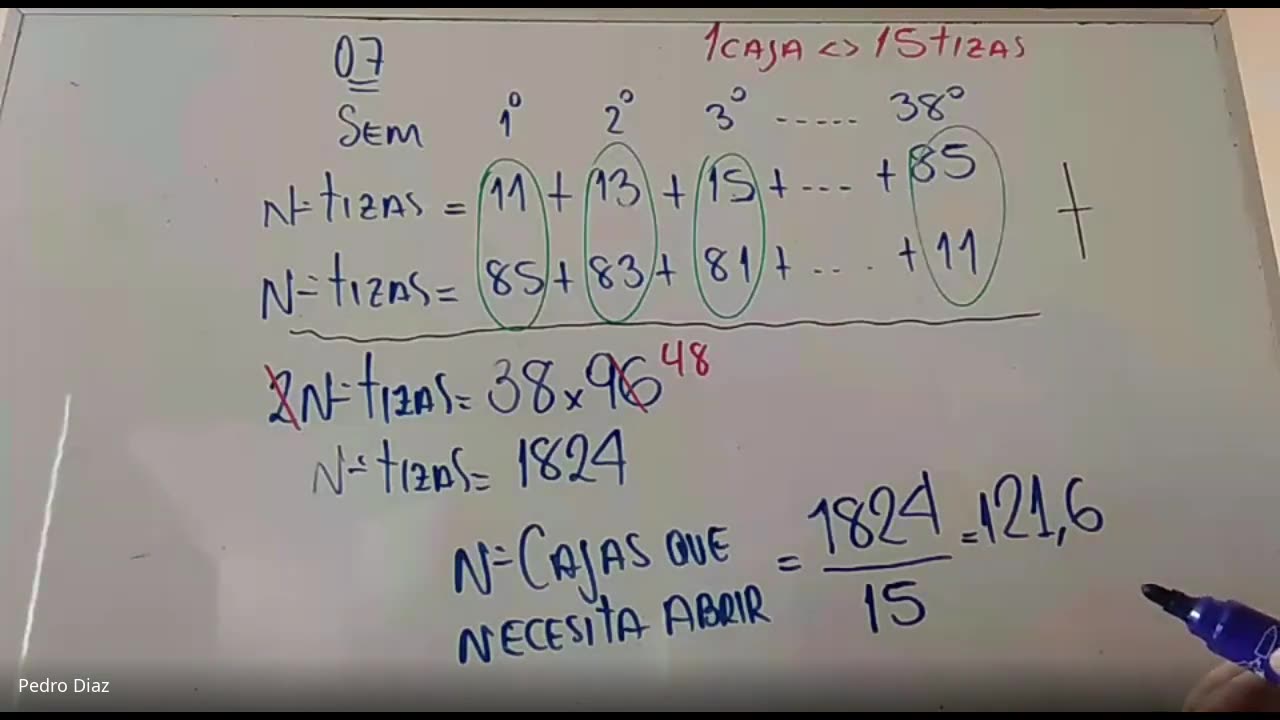 07
1 CAJA <> 15 tIZAS
SEM 1° 2° 3° ----- 38°
N= tIZAS = 11 + 13 + 15 + --- + 85
N= tIZAS = 85 + 83 + 81 + .... + 11
+
2N= tIZAS = 38 x 96 48
N= tIZAS = 1824
N= CAJAS QUE NECESITA ABRIR = 1824/15 = 121,6
Pedro Diaz